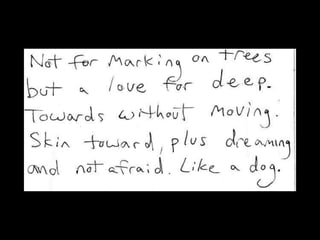 Not for marking on trees
but a love for deep.
Towards without moving.
Skin toward, plus dreaming
and not afraid. Like a dog.